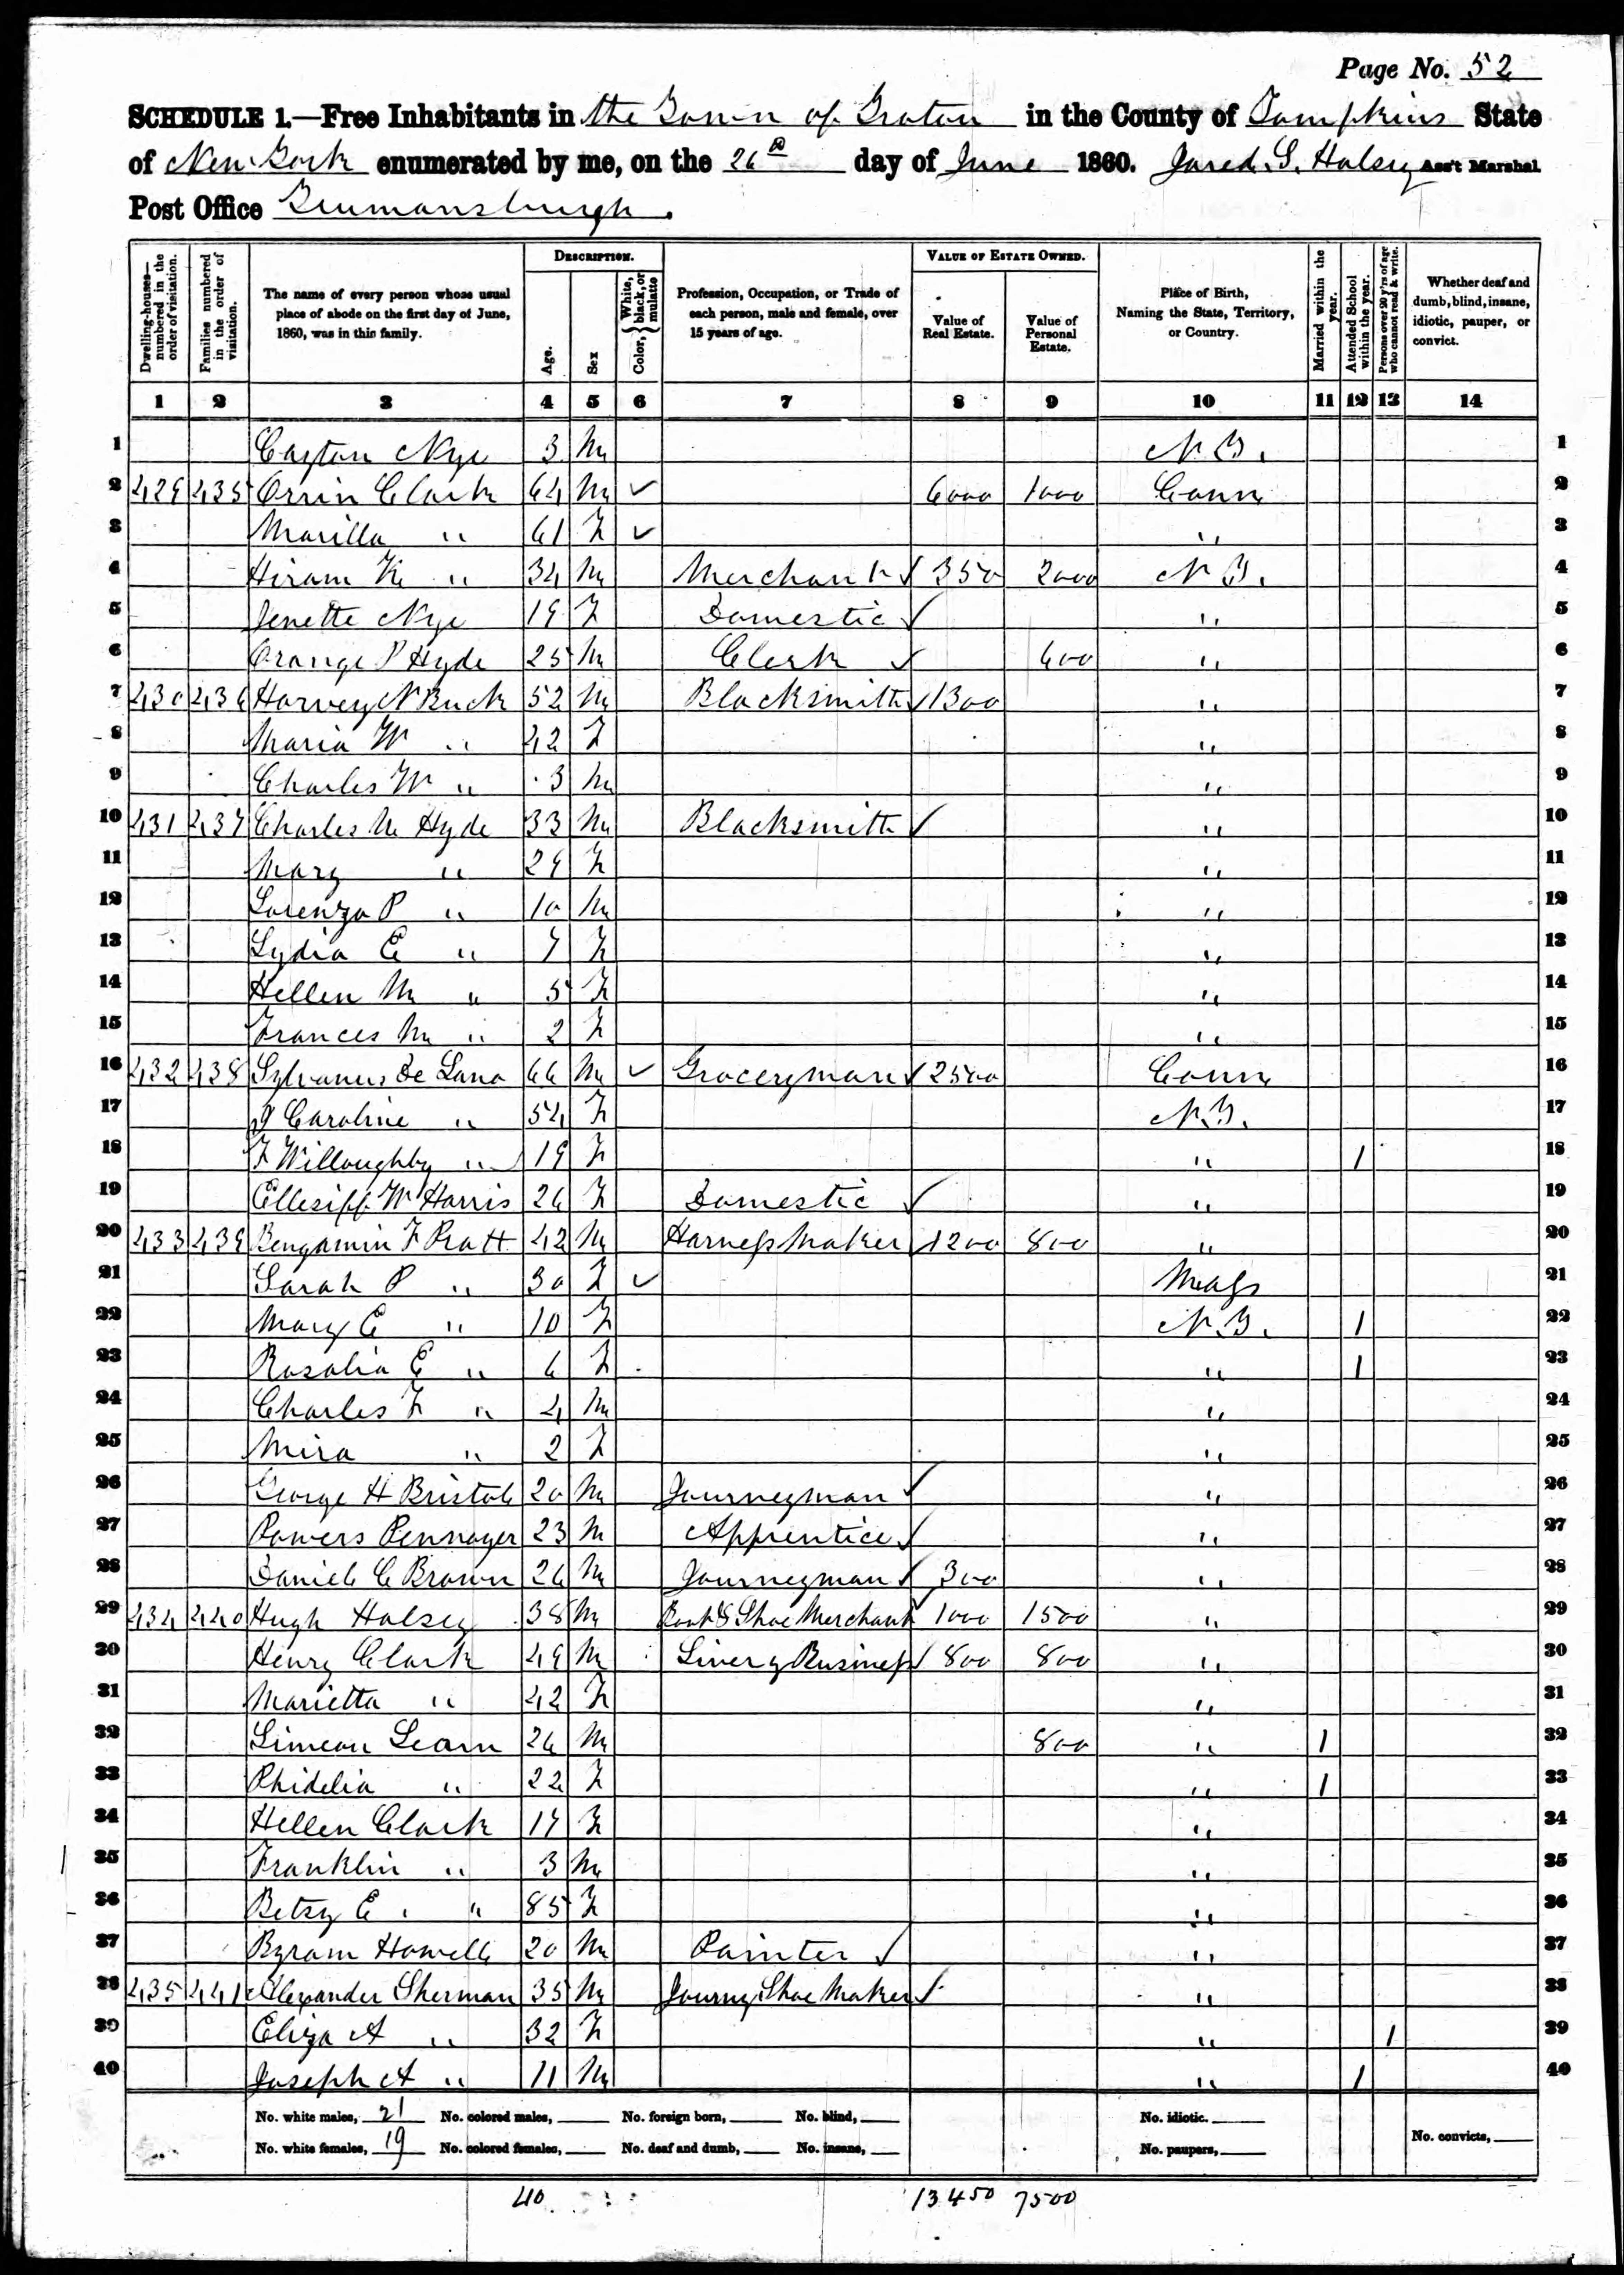 Page No. 52
SCHEDULE 1.—Free Inhabitants in the Town of Groton in the County of Tompkins State
of New York enumerated by me, on the 26th day of June 1860. Jared. S. Halsey Ass't Marshal
Post Office Trumansburgh.
Dwelling-houses—numbered in the order of visitation. Families numbered in the order of visitation. The name of every person whose usual place of abode on the first day of June, 1860, was in this family. DESCRIPTION. Age. Sex Color, White, black, or mulatto Profession, Occupation, or Trade of each person, male and female, over 15 years of age. VALUE OF ESTATE OWNED. Value of Real Estate. Value of Personal Estate. Place of Birth, Naming the State, Territory, or Country. Married within the year. Attended School within the year. Persons over 20 y'rs of age who cannot read & write. Whether deaf and dumb, blind, insane, idiotic, pauper, or convict.
1 2 3 4 5 6 7 8 9 10 11 12 13 14
1 Nye 3 M N.Y. 1
2 429 435 Orrin Clark 64 M ✓ 6000 1000 Conn 2
3 Marilla " 61 F ✓ " 3
4 Hiram K " 34 M Merchant ✓ 350 2000 N.Y. 4
5 Jenette Nye 19 F Domestic ✓ " 5
6 Orange P Hyde 25 M Clerk ✓ 600 " 6
7 430 436 Harvey N Buck 52 M Blacksmith ✓ 1300 " 7
8 Maria W " 42 F " 8
9 Charles W " 3 M " 9
10 431 437 Charles M Hyde 33 M Blacksmith ✓ " 10
11 Mary " 29 F " 11
12 Lorenzo P " 10 M " 12
13 Lydia E " 7 F " 13
14 Hellen M " 5 F " 14
15 Frances M " 2 F " 15
16 432 438 Sylvanus De Lano 66 M ✓ Groceryman ✓ 2500 Conn 16
17 Caroline " 54 F N.Y. 17
18 F Willoughby " 19 F " 1 18
19 W Harris 26 F Domestic ✓ " 19
20 433 439 Bengamin F Pratt 42 M Harness Maker ✓ 1200 800 " 20
21 Sarah P " 30 F ✓ Mass 21
22 Mary E " 10 F N.Y. 1 22
23 Rosalia E " 6 F " 1 23
24 Charles F " 4 M " 24
25 Mira " 2 F " 25
26 George H Bristol 20 M Journeyman ✓ " 26
27 Powers Pennoyer 23 M Apprentice ✓ " 27
28 Daniel C Brown 26 M Journeyman ✓ 300 " 28
29 434 440 Hugh Halsey 38 M Boot & Shoe Merchant 1000 1500 " 29
30 Henry Clark 49 M Livery Business ✓ 800 800 " 30
31 Marietta " 42 F " 31
32 Simeon Learn 26 M 800 " 1 32
33 Phidelia " 22 F " 1 33
34 Hellen Clark 17 F " 34
35 Franklin " 3 M " 35
36 Betsy E " 85 F " 36
37 Byram Howell 20 M Painter ✓ " 37
38 435 441 Alexander Sherman 35 M Journy Shoe Maker ✓ " 38
39 Eliza A " 32 F " 1 39
40 Joseph A " 11 M " 1 40
No. white males, 21 No. colored males, No. foreign born, No. blind, No. idiotic.
No. white females, 19 No. colored females, No. deaf and dumb, No. insane, No. paupers, No. convicts,
40 13450 7500